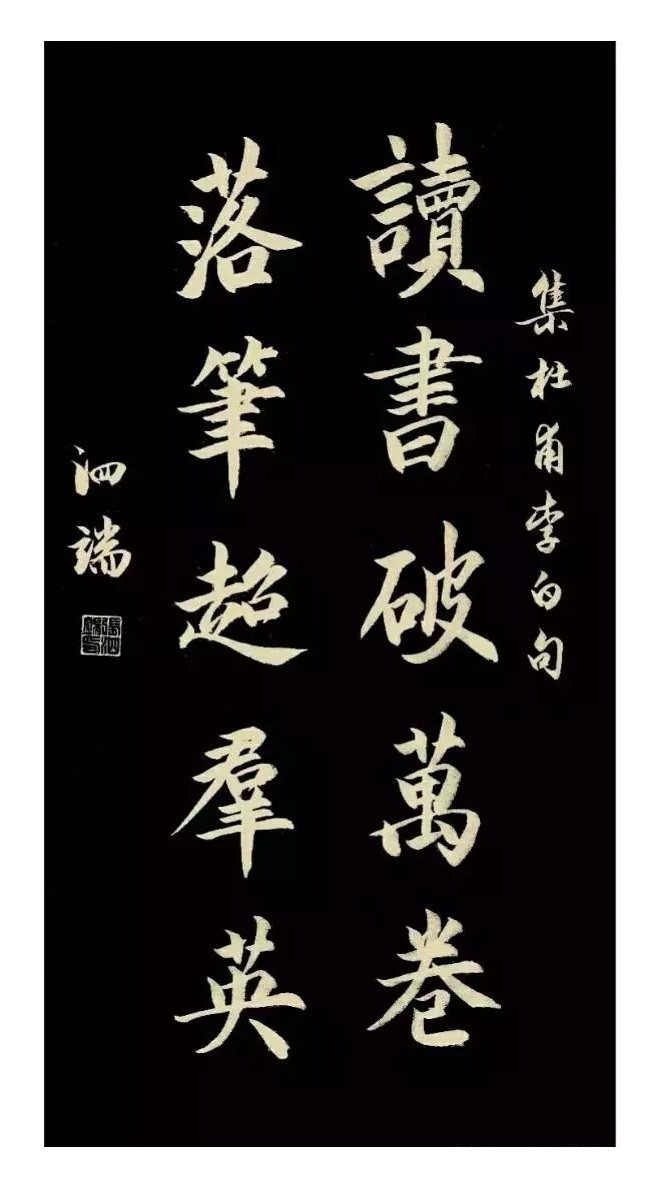 集杜甫李白句
讀書破萬卷
落筆超羣英
泗端